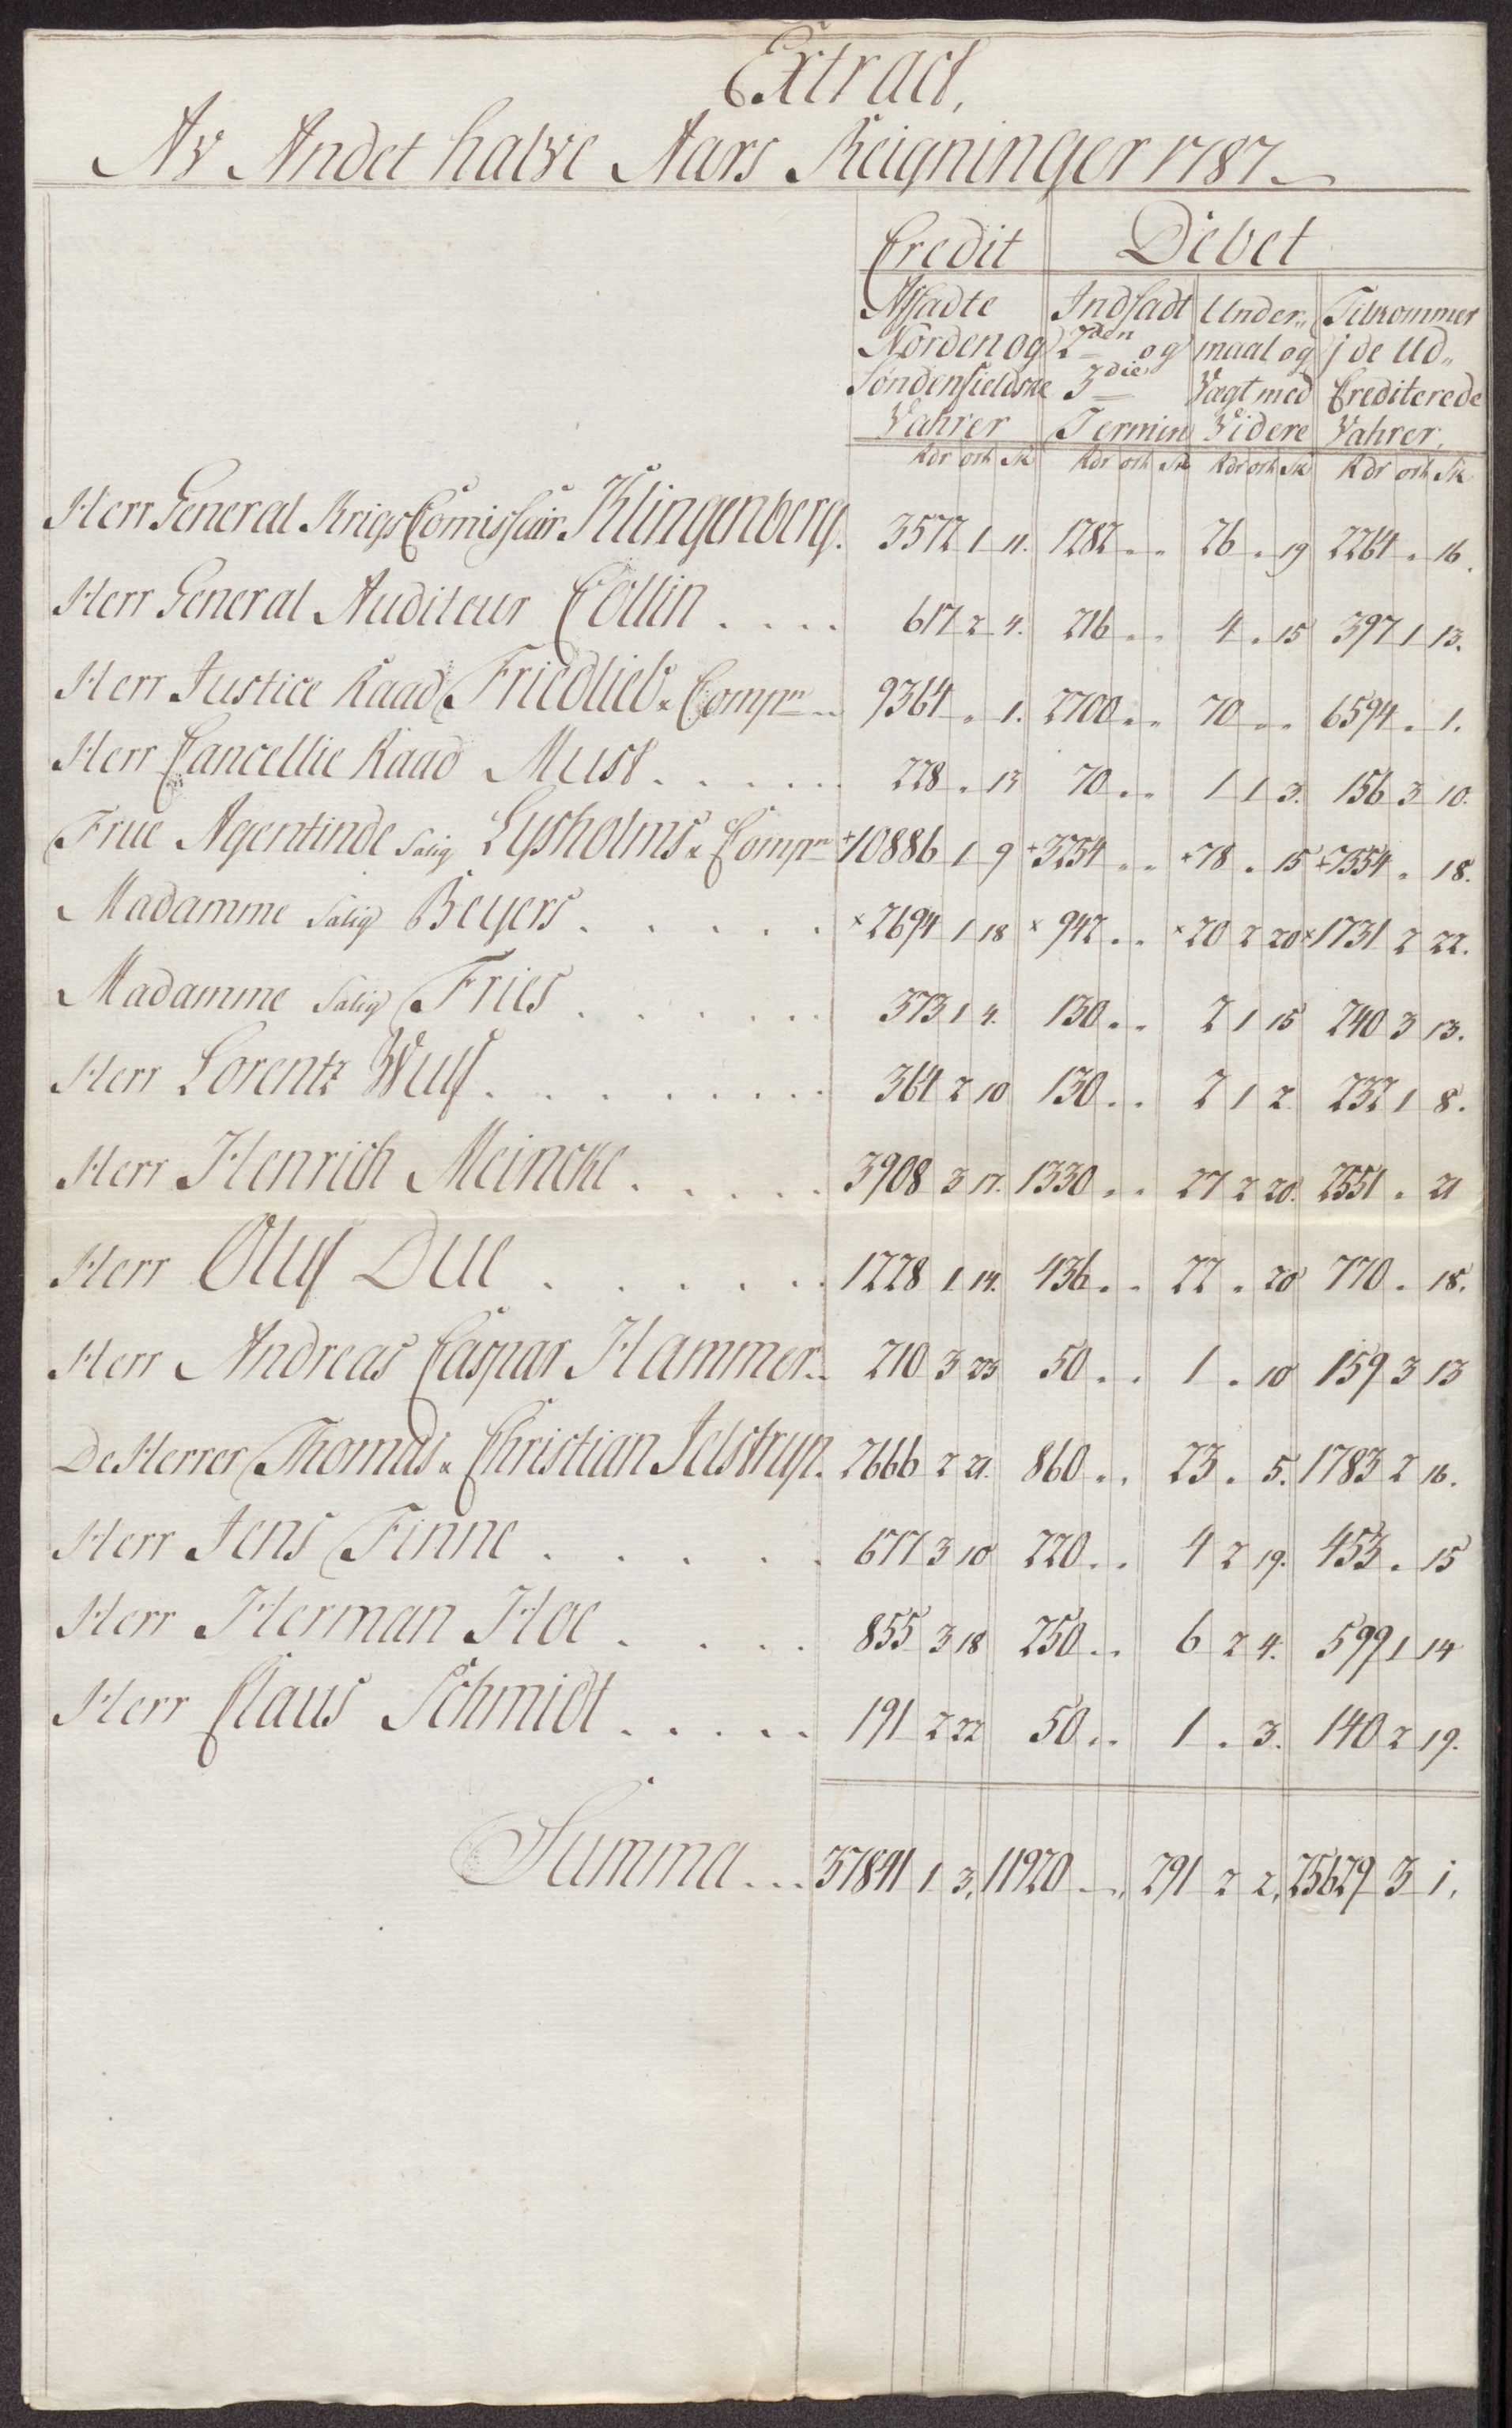 Extract,
Av Andet halve Aars Reigninger 1787
Credit Debet
Afsadte Indsadt Under„ Tilkommer
Norden og 2den og maal og j de Ud„
Søndenfieldske 3die Vægt med Crediterede
Vahrer Termin Videre Vahrer,
Rdr ort Sk Rdr ort Sk Rdr ort Sk Rdr ort Sk
Herr General Krigs Comissair Klingenberg. 3572 1 11. 1282 „ „ 26 „ 19 2264 „ 16.
Herr General Auditeur Collin .... 617 2 4. 216 „ „ 4 „ 15 397 1 13.
Herr Justice Raad Friedlieb & Compn .. 9364 „ 1. 2700 „ „ 70 „ „ 6594 „ 1.
Herr Cancellie Raad Must ..... 228 „ 13 70 „ „ 1 1 3. 156 3 10.
Frue Agentinde Salig Lysholms & Compn + 10886 1 9 + 3254 „ „ + 78 „ 15 + 7554 „ 18.
Madamme Salig Beyers ..... × 2694 1 18 × 942 „ „ × 20 2 20 × 1731 2 22.
Madamme Salig Fries ...... 373 1 4. 130 „ „ 2 1 15 240 3 13.
Herr Lorentz Wulf ........ 364 2 10 130 „ „ 2 1 2. 232 1 8.
Herr Henrich Meincke ..... 3908 3 17. 1330 „ „ 27 2 20. 2551 „ 21
Herr Oluf Due ...... 1228 1 14. 436 „ „ 22 „ 20 770 „ 18.
Herr Andreas Caspar Hammer .. 210 3 23 50 „ „ 1 „ 10 159 3 13
De Herrer Thomas & Christian Jelstrup. 2666 2 21. 860 „ „ 23 „ 5. 1783 2 16.
Herr Jens Finne ..... 677 3 10 220 „ „ 4 2 19. 453 „ 15
Herr Herman Hoe .... 855 3 18 250 „ „ 6 2 4. 599 1 14
Herr Claus Schmidt ..... 191 2 22 50 „ „ 1 „ 3. 140 2 19.
Summa ... 37841 1 3, 11920 „ „, 291 2 2, 25629 3 1,